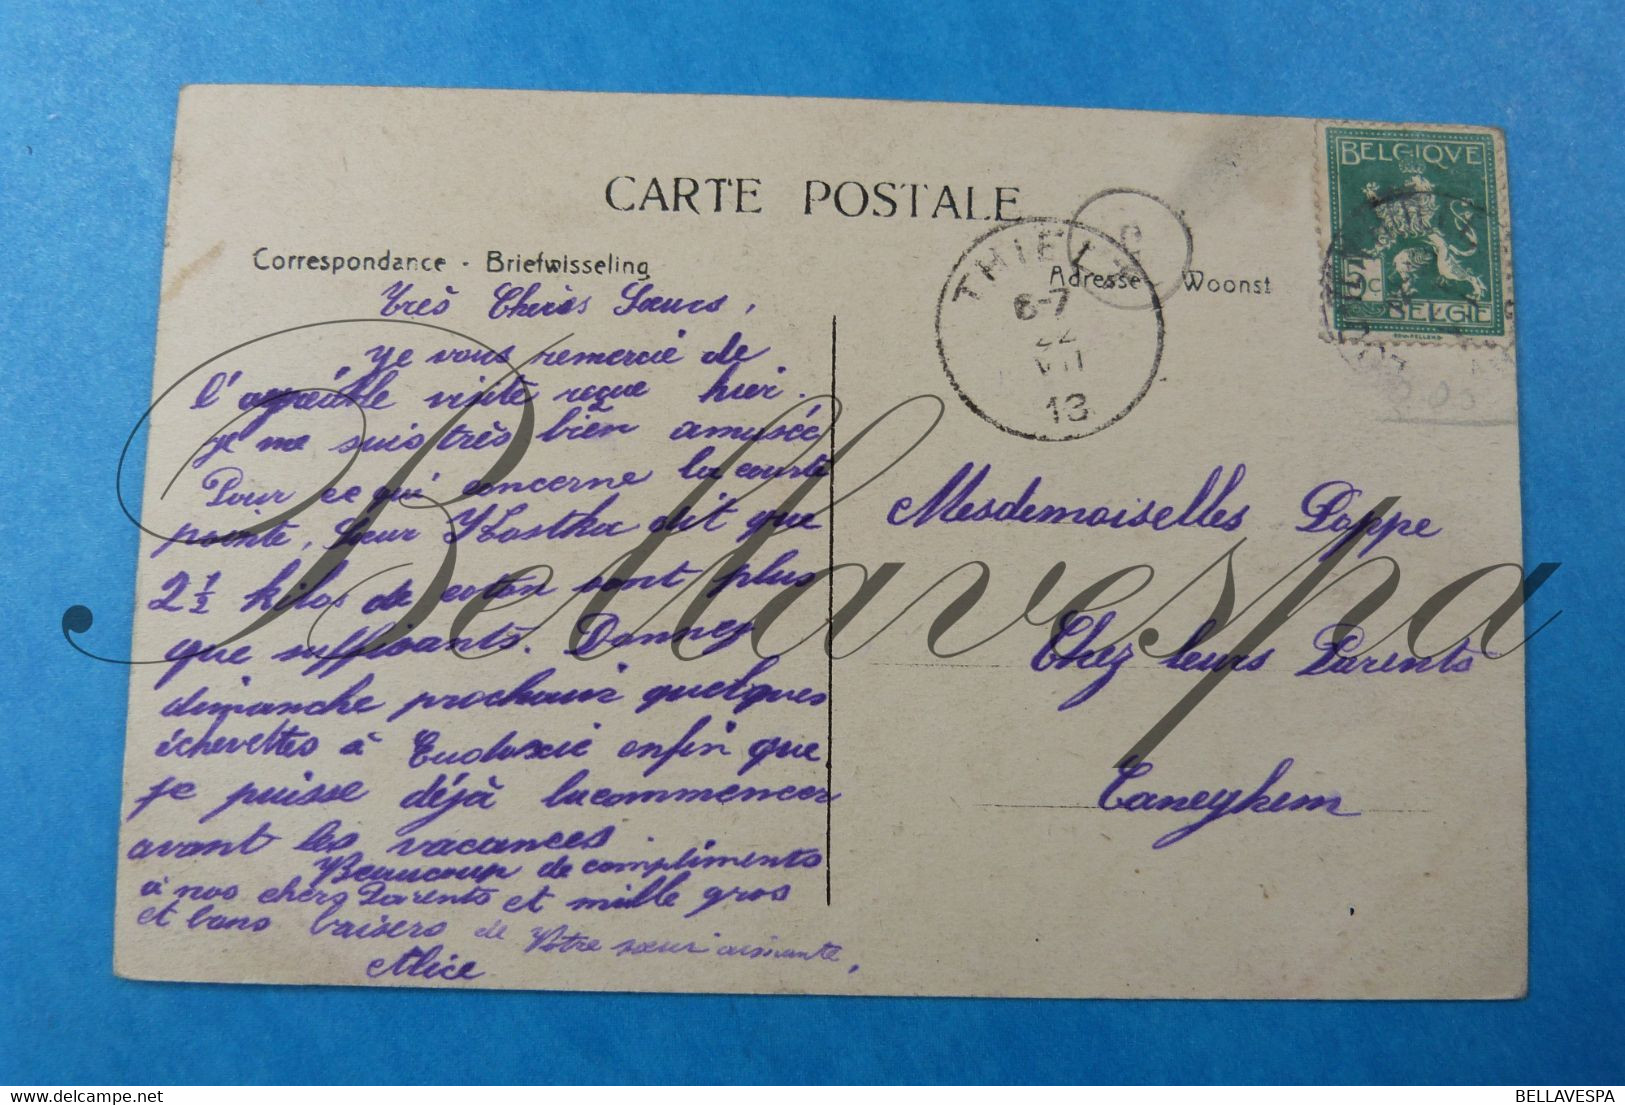 CARTE POSTALE
Correspondance - Briefwisseling
Adresse - Woonst
BELGIQUE
5c
BELGIE
THIELT
6-7
22
VII
13
Très Chères Sœurs,
Je vous remercie de
l'agréable visite reçue hier.
Je me suis très bien amusée
Pour ce qui concerne la courte
pointe, Sœur Kostka dit que
2 ½ kilos de coton sont plus
que suffisants. Donnez
dimanche prochain quelques
échevettes à Eudoxie enfin que
je puisse déjà la commencer
avant les vacances.
Beaucoup de compliments
à nos chers Parents et mille gros
et bons baisers de Votre sœur aimante,
Alice
Mesdemoiselles Poppe
Chez leurs Parents
Caneghem
Bellavespa
BELLAVESPA